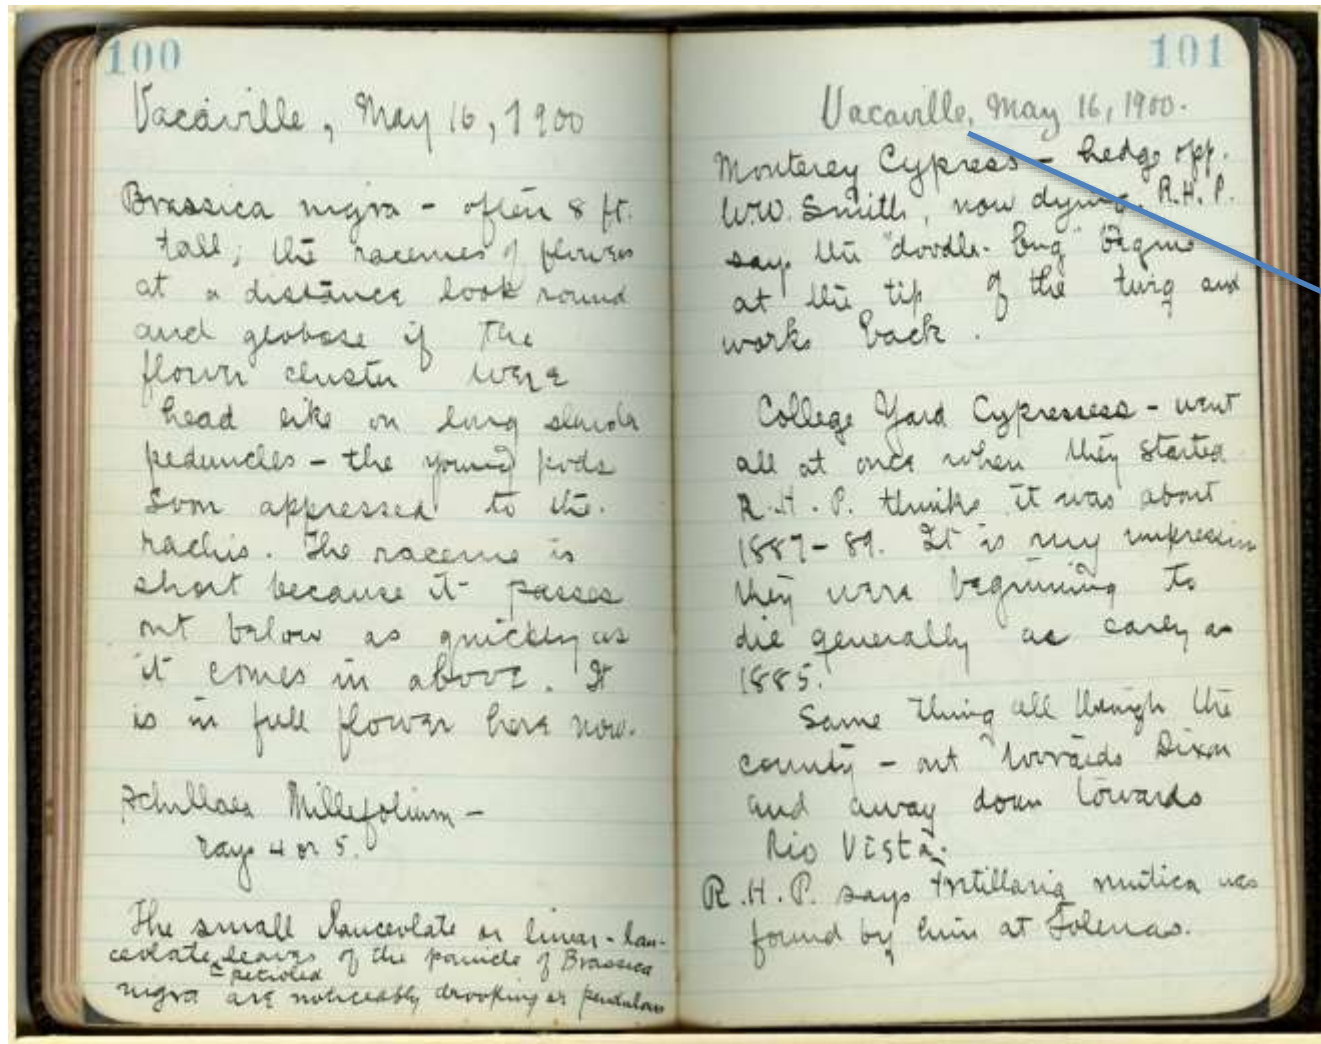 100
Vacaville, May 16, 1900
Brassica nigra - often 8 ft.
tall; the racemes of flowers
at a distance look round
and globose if the
flower cluster were
head like on long slender
peduncles - the young pods
soon appressed to the
rachis. The raceme is
short because it passes
out below as quickly as
it comes in above. It
is in full flower here now.
Achillaea Millefolium -
rays 4 or 5.
The small lanceolate or linear-lan-
ceolate leaves of the panicle of Brassica
petioled
nigra are noticeably drooping or pendulous
101
Vacaville, May 16, 1900.
Monterey Cypress - hedge opp.
W.W. Smith, now dying. R.H.P.
says the "doodle-bug" begins
at the tip of the twig and
works back.
College Yard Cypresses - went
all at once when they started
R.H.P. thinks it was about
1887-89. It is my impression
they were beginning to
die generally as early as
1885.
Same thing all through the
county - out towards Dixon
and away down towards
Rio Vista.
R.H.P. says Fritillaria mutica was
found by him at Tolenas.